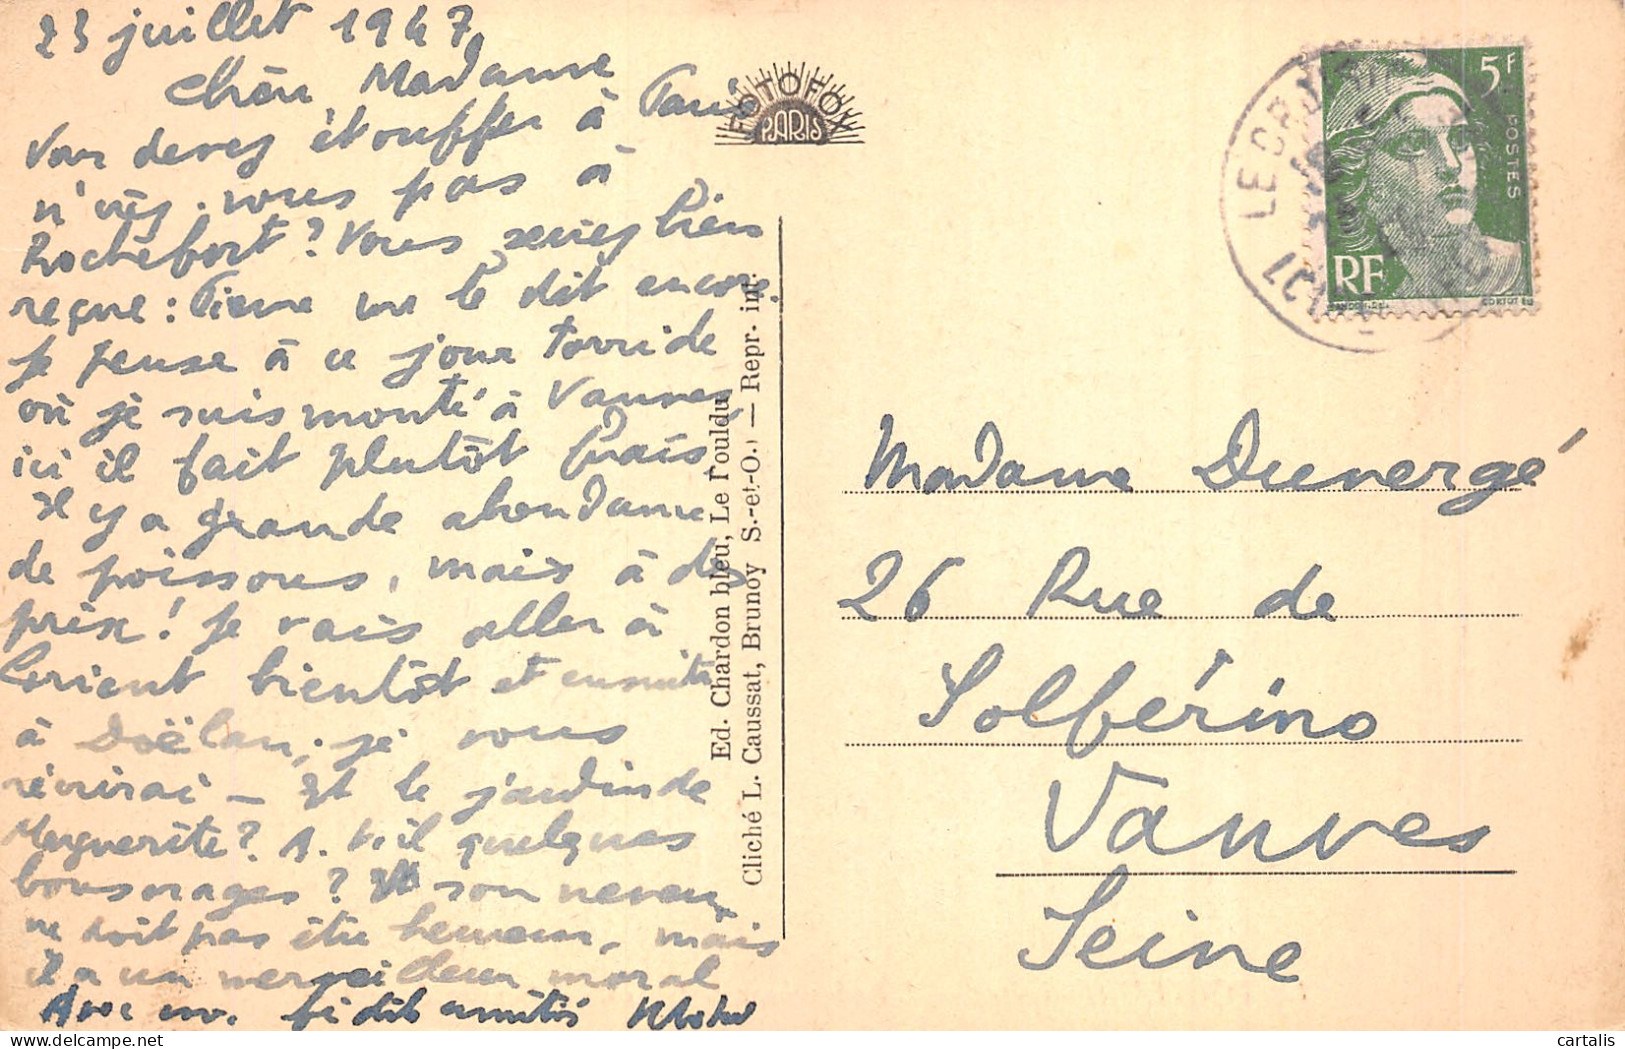 23 juillet 1947
Chère Madame
Vous devez étouffer à Paris
n'irez-vous pas à
Rochefort? Vous seriez bien
reçue: Pierre me le dit encore.
Je pense à ce jour torride
où je suis monté à Vanves,
ici il fait plutôt frais,
Il y a grande abondance
de poissons, mais à des
prix! Je vais aller à
Lorient bientôt et ensuite
à Doëlan, je vous
récrirai - Et le jardin de
Marguerite? A-t-il quelques
bons orages? Et son neveu
ne doit pas être heureux, mais
il a un merveilleux moral
Avec mes amitiés
FOTOFOX
PARIS
Ed. Chardon bleu, Le Pouldu
Cliché L. Caussat, Brunoy S.-et-O.) — Repr. int.
5F
POSTES
RF
GANDON DEL.
CORTOT SC
Madame Duvergé
26 Rue de
Solférino
Vanves
Seine
cartalis